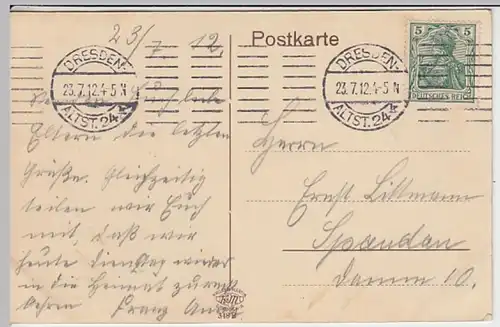 23/7 12.
Postkarte
DRESDEN-
23.7.12.4-5N
ALTST. 24
DRESDEN-
23.7.12.4-5N
ALTST. 24
5 5
DEUTSCHES REICH
Euch liebe
Eltern die letzten
Grüße. Gleichzeitig
teilen wir Euch
mit, daß wir
heute Dienstag wieder
in die Heimat zurück
kehren Franz
Herrn
Ernst Littmann
Spandau
Damm 10.